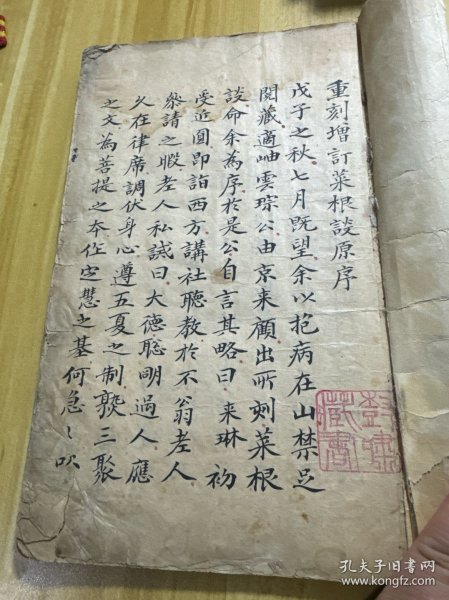 重刻增訂菜根談原序
戊子之秋七月既望余以抱病在山禁足
閱藏適岫雲琮公由京来顧出所刻菜根
談命余為序於是公自言其略曰来琳初
受近圓即詣西方講社聽教於不翁老人
叅請之暇老人私誡曰大德聡明過人應
久在律席調伏身心遵五夏之制熟三聚
之文為菩提之本作定慧之基何急〻吹
藏書
孔夫子旧书网
www.kongfz.com